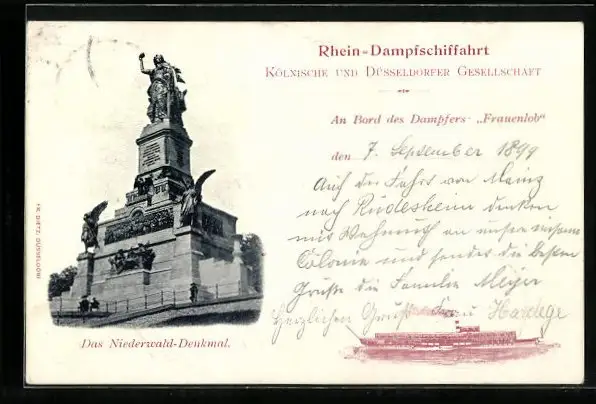 Rhein-Dampfschiffahrt
Kölnische und Düsseldorfer Gesellschaft
An Bord des Dampfers „Frauenlob“
den 7. September 1899
Auf der Fahrt von Mainz
nach Rüdesheim denken
wir Wehmuth an unsere
Colonie und senden die besten
Grüße die Familie Meyer
Herzlichen Gruß Frau Hardege
Das Niederwald-Denkmal.